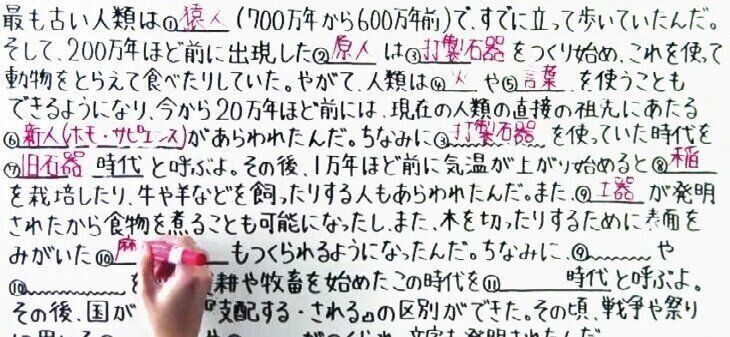 最も古い人類は①猿人(700万年から600万年前)で、すでに立って歩いていたんだ。
そして、200万年ほど前に出現した②原人は③打製石器をつくり始め、これを使って
動物をとらえて食べたりしていた。やがて、人類は④火や⑤言葉を使うことも
できるようになり、今から20万年ほど前には、現在の人類の直接の祖先にあたる
⑥新人(ホモ・サピエンス)があらわれたんだ。ちなみに③打製石器を使っていた時代を
⑦旧石器時代と呼ぶよ。その後、1万年ほど前に気温が上がり始めると⑧稲
を栽培したり、牛や羊などを飼ったりする人もあらわれたんだ。また、⑨土器が発明
されたから食物を煮ることも可能になったし、また、木を切ったりするために表面を
みがいた⑩もつくられるようになったんだ。ちなみに、⑨や
⑩を 耕や牧畜を始めたこの時代を⑪時代と呼ぶよ。
その後、国が 『支配する・される』の区別ができた。その頃、戦争や祭り